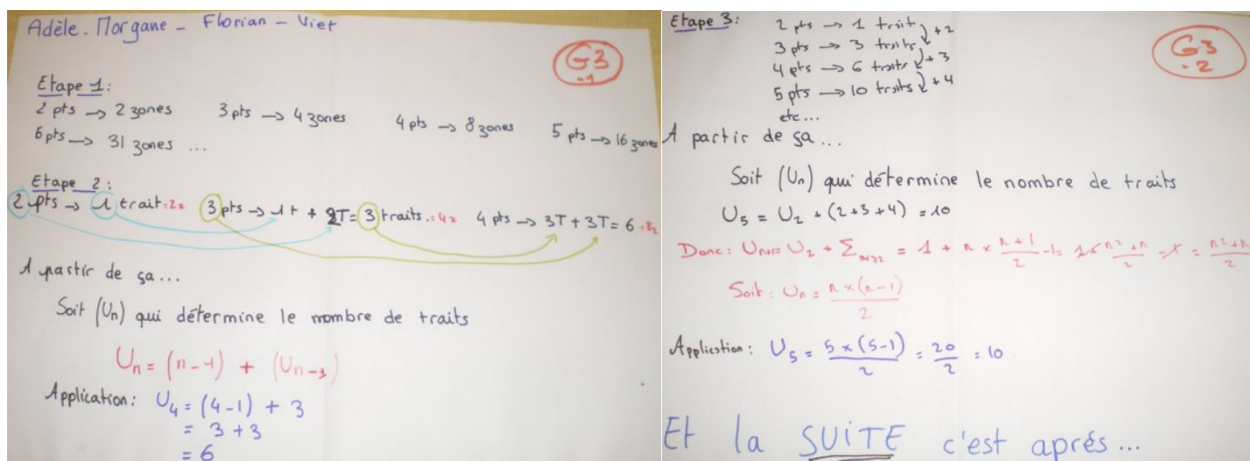 Adèle - Morgane - Florian - Viet
G3
-1
Etape 1:
2 pts → 2 zones 3 pts → 4 zones 4 pts → 8 zones 5 pts → 16 zones
6 pts → 31 zones ...
Etape 2:
2 pts → 1 trait = 2z 3 pts → 1t + 2T = 3 traits. = 4z 4 pts → 3T + 3T = 6 = 8z
A partir de ça...
Soit (Un) qui détermine le nombre de traits
Un = (n-1) + (Un-1)
Application: U4 = (4-1) + 3
= 3 + 3
= 6
Etape 3: 2 pts → 1 trait
+2
3 pts → 3 traits
+3
4 pts → 6 traits
+4
5 pts → 10 traits
etc...
G3
-2
A partir de ça...
Soit (Un) qui détermine le nombre de traits
U5 = U2 + (2+3+4) = 10
Donc: Un+1 = U2 + Σn≥2 = 1 + n × n+1/2 - 1 = 1 + n²+n/2 - 1 = n²+n/2
Soit: Un = n×(n-1)/2
Application: U5 = 5×(5-1)/2 = 20/2 = 10
Et la SUITE c'est aprés...